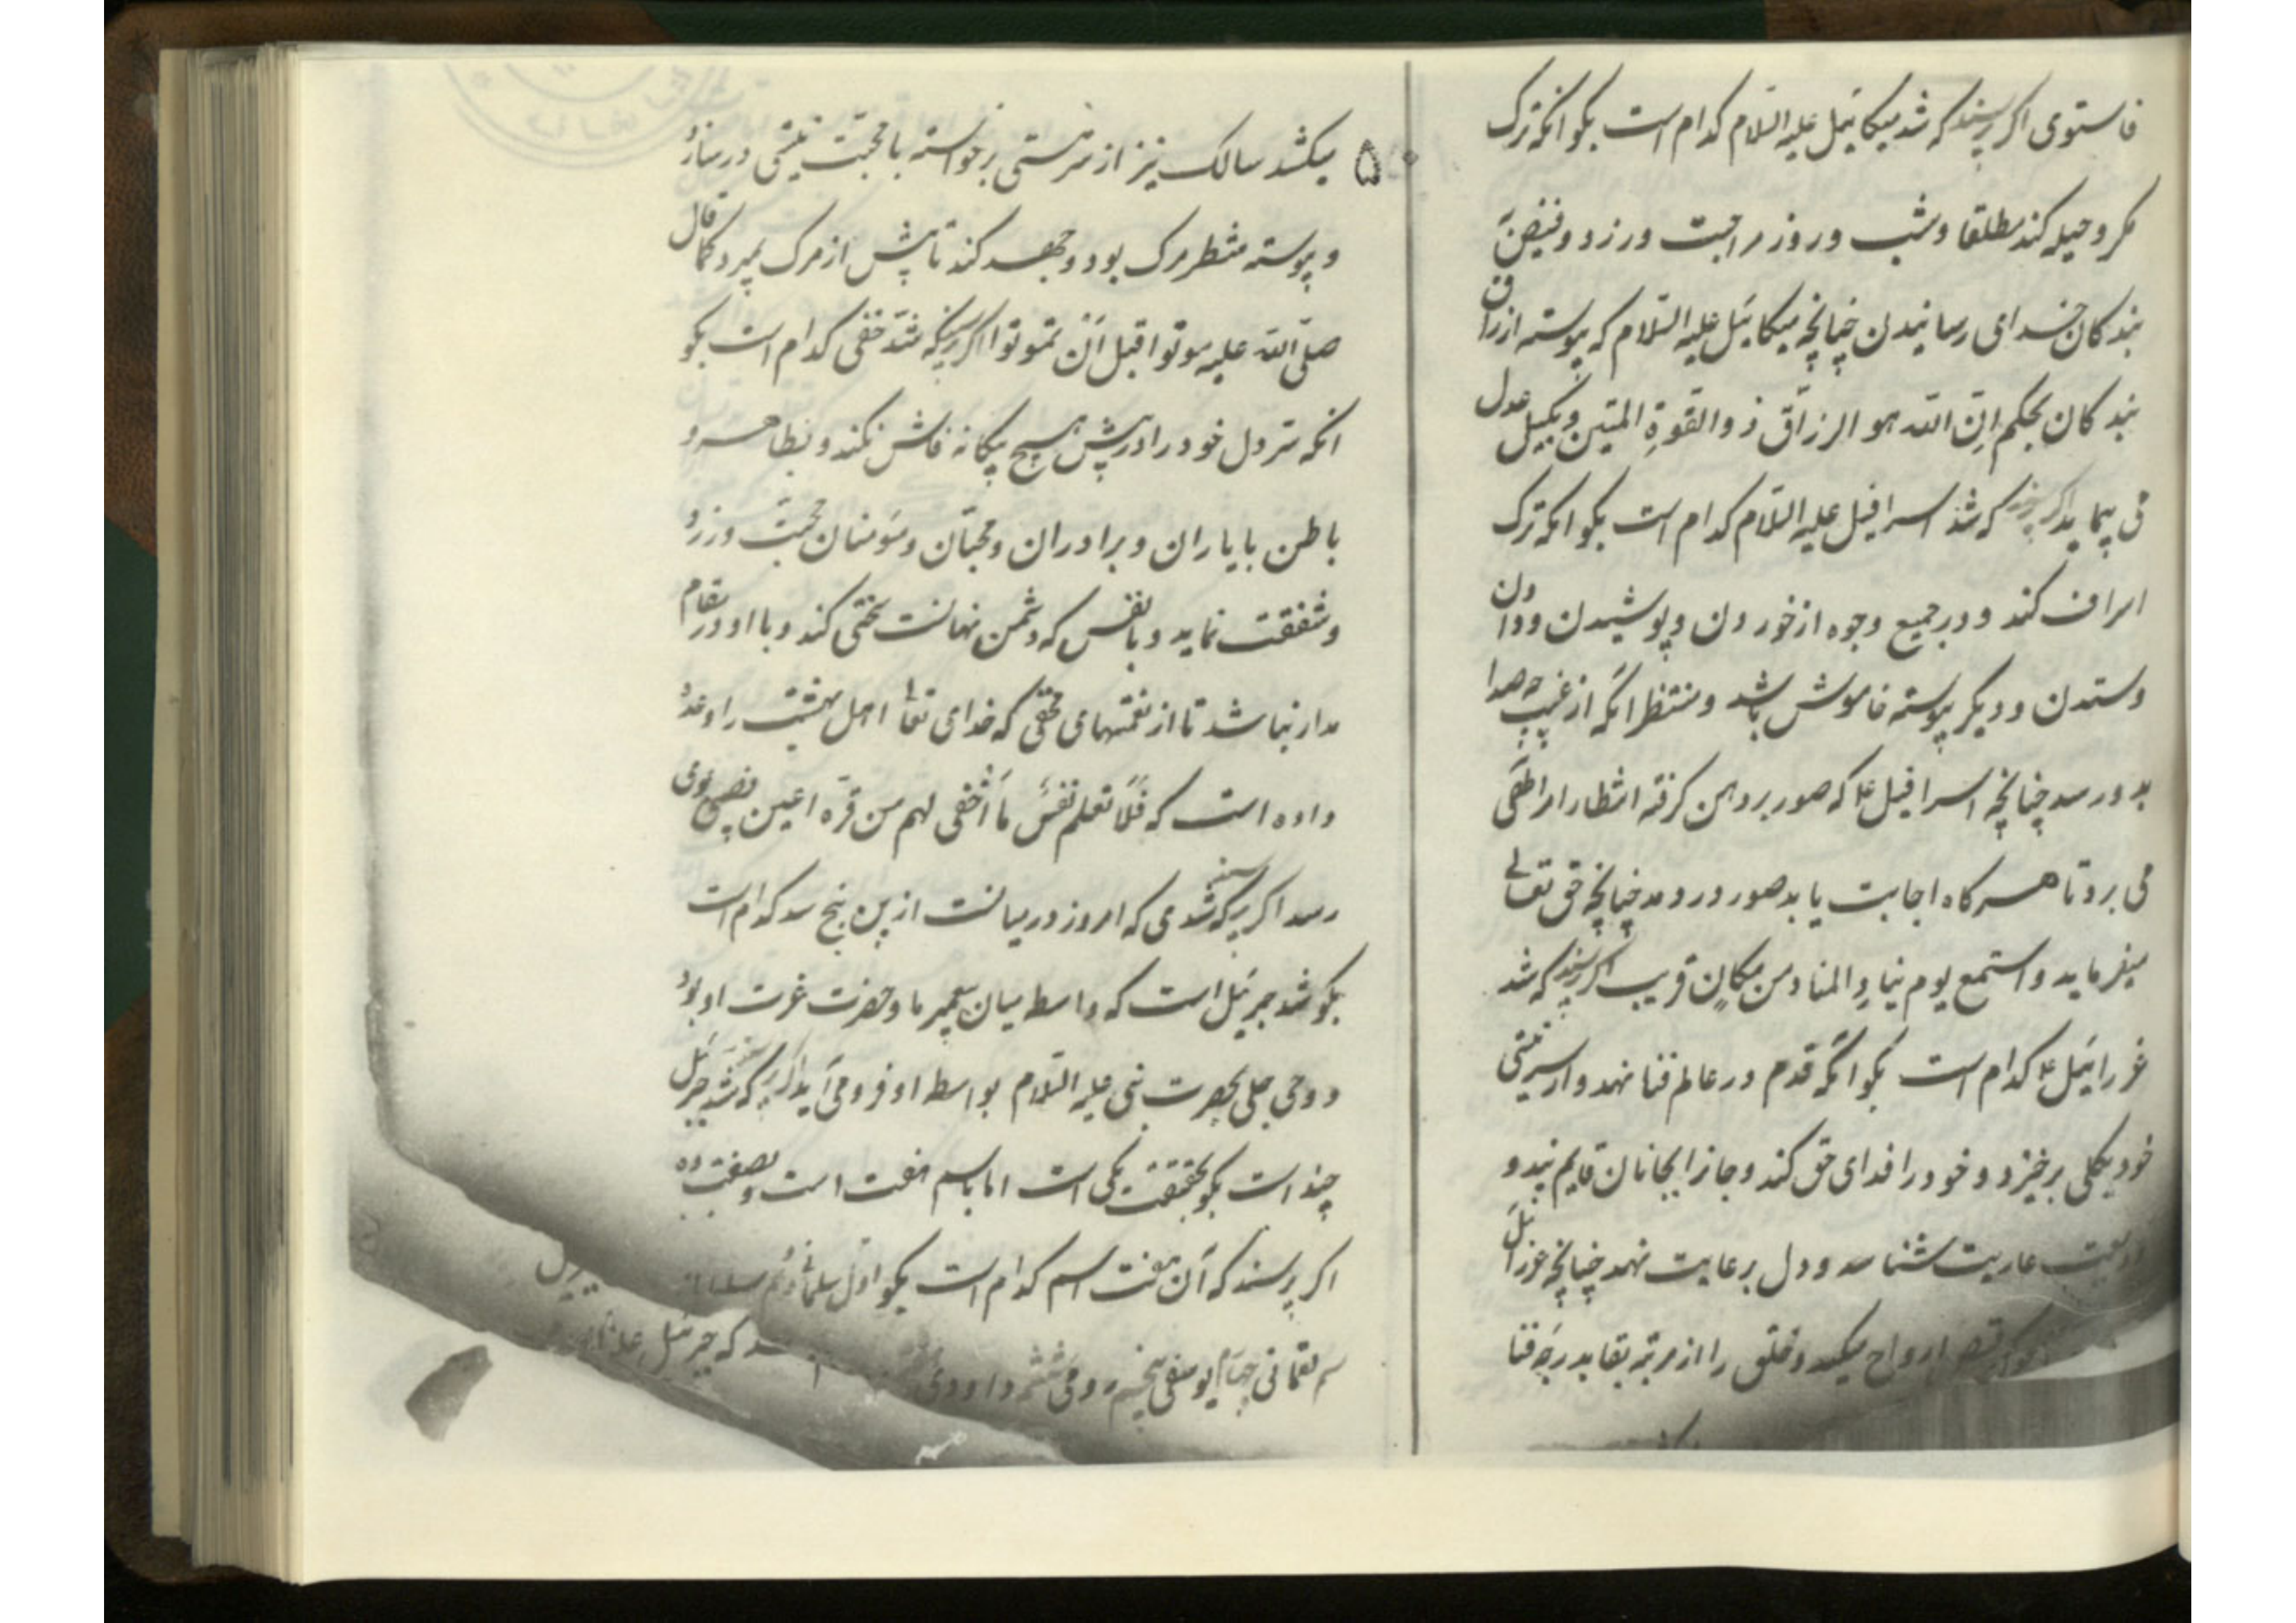 فاستوی اگر پرسند که شد میکائیل علیه السّلام کدام است بگو انکه ترک
مکر و حیله کند مطلقا و شب و روز مراجبت ورزد و فیض
بندکان خدای رسانیدن چنانچه میکائیل علیه السّلام که پیوسته ارزاق
بندکان بحکم اِنّ اللّه هو الرزاق ذو القوةِ المتین و بکیل عدل
می پیماید اگر پرسند که شد اسرافیل علیه السّلام کدام است بگو انکه ترک
اسراف کند و در جمیع وجوه از خوردن و پوشیدن و دادن
و ستدن و دیکر پیوسته خاموش باشد و منتظر انکه از غیب چه صدا
بدو رسد چنانچه اسرافیل ع که صور بر دهن کرفته انتظار امر حق
می برد تا هر کاه اجابت یابد صور در دمد چنانچه حق تعالی
میفرماید و استمع یوم ینادِ المناد من مکانٍ قریب اگر پرسند که شد
عزرائیل ع کدام است بگو انکه قدم در عالم فنا نهد و از سر هستی
خود بکلی برخیزد و خود را فدای حق کند و جانرا بجانان قایم بیند و
عاریت شناسد و دل بر عاریت ننهد چنانچه عزرائیل
قبض ارواح میکند و خلق را از مرتبه بقا بدرجه فنا
۵ میکشد سالک نیز از سر هستی برخواسته با محبت نیستی در سازد
و پیوسته منتظر مرک بود و جهد کند تا پیش از مرک بمیرد کما قال
صلّی اللّه علیه موتوا قبل اَن تموتوا اگر پرسند که شدّ خفی کدام است بگو
انکه سرّ دل خود را در پیش هیچ بیکانه فاش نکند و بظاهر و
باطن با یاران و برادران و محبّان و مؤمنان محبّت ورزد
و شفقت نماید و با نفس که دشمن نهانست سختی کند و با او در مقام
مدار نباشد تا از نعمتهای خفی که خدای تعالی اهل بهشت را وعده
داده است که فَلا تعلم نفسٌ ما اُخفی لهم من قرّه اعین نصیبی بوی
رسد اگر پرسند که شدی که امروز در میانست ازین پنج شد کدام است
بگو شد جبرئیل است که واسطه میان پیغمبر ما و حضرت عزت او بود
و وحی جلی بحضرت نبی علیه السّلام بواسطه او فرو می آید اگر پرسند که شد جبرئیل
چند است بگو بحقیقت یکی است اما باسم هفت است و بصفت ده
اگر پرسند که آن هفت اسم کدام است بگو اول سلمانی دوّم
لقمانی چهارم یوسفی پنجم رومی ششم داوودی